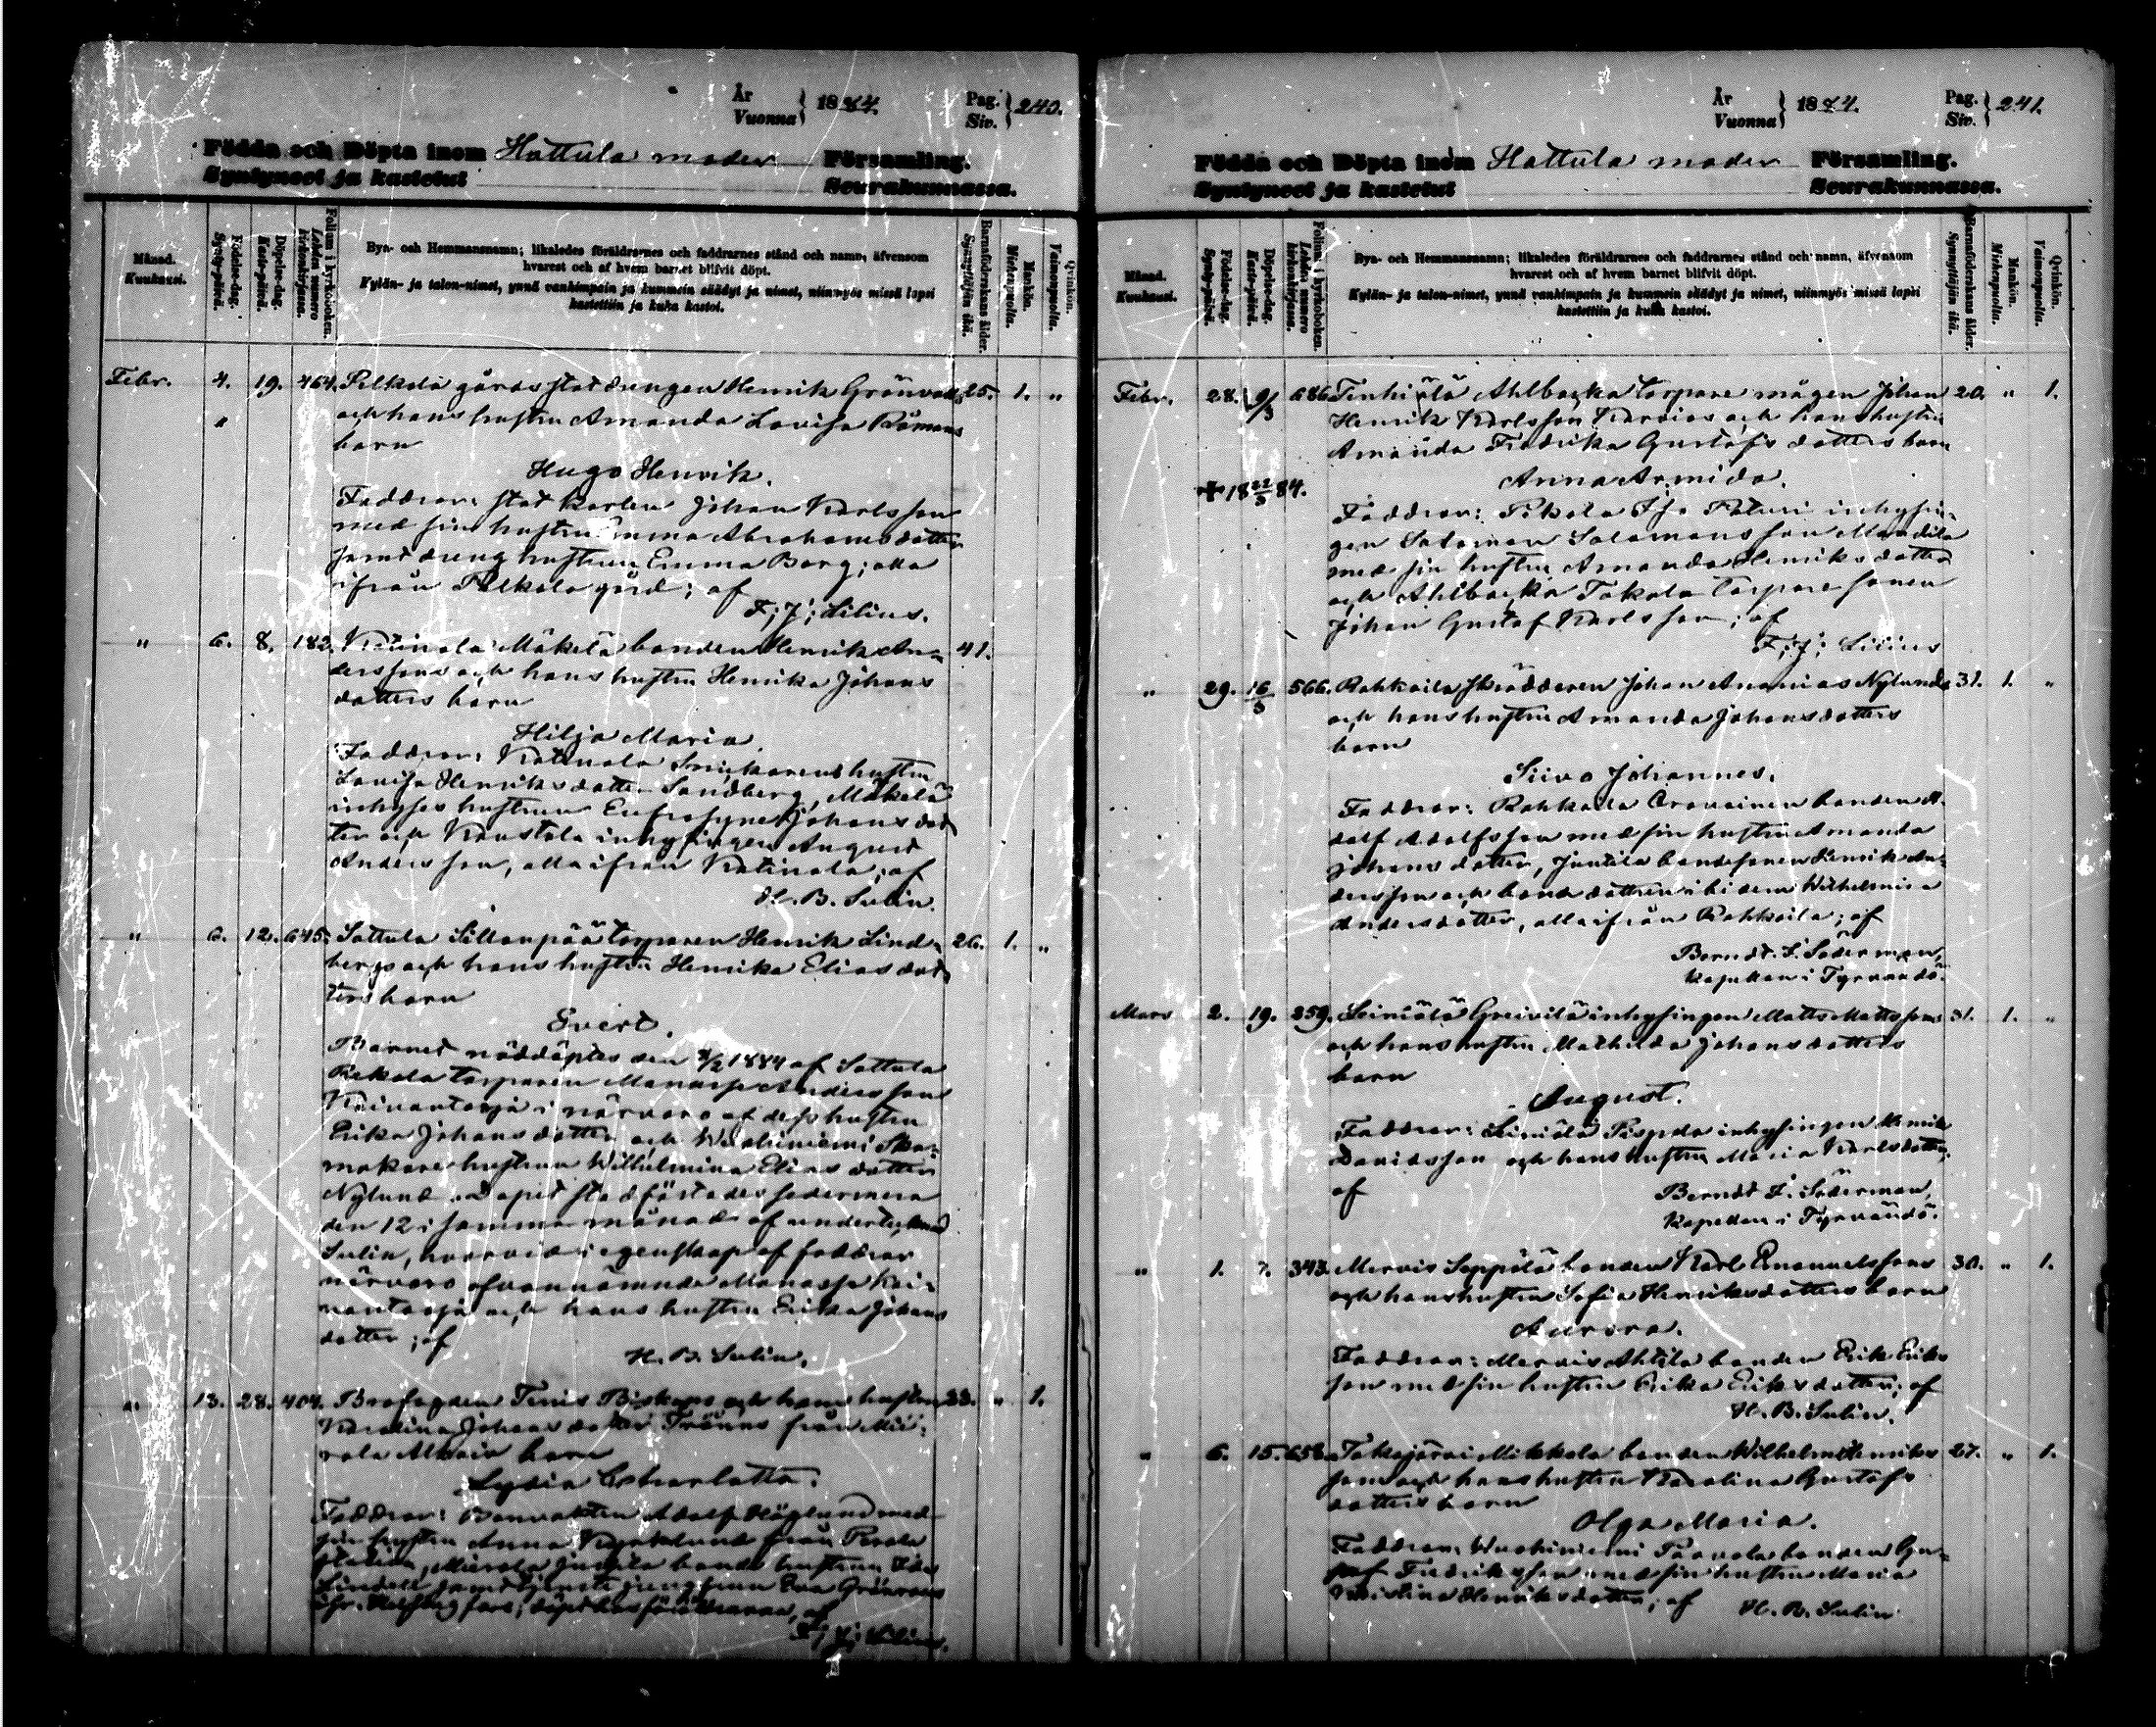 År
Vuonna } 1884. Pag.
Siv. } 240.
Födda och Döpta inom Hattula moder Församling.
Syntyneet ja kastetut Seurakunnassa.
Månad.
Kuukausi.
Födelse-dag.
Synty-päivä.
Döpelse-dag.
Kaste-päivä.
Folium i kyrkoboken.
Lehden numero
kirkonkirjassa.
Bya- och Hemmansnamn; likaledes föräldrarnes och faddrarnes stånd och namn, äfvensom
hvarest och af hvem barnet blifvit döpt.
Kylän- ja talon-nimet, ynnä vanhimpain ja kummein säädyt ja nimet, niinmyös missä lapsi
kastettiin ja kuka kastoi.
Barnaföderskans ålder.
Synnyttäjän ikä.
Mankön.
Miehenpuolta.
Qvinkön.
Vaimonpuolta.
Febr. 4. 19. 464. Pelkola gårds statdrengen Henrik Grönvalls 25. 1. "
" och hans hustru Amanda Lovisa Römans
barn
Hugo Henrik.
Faddrar: stat karlen Johan Karlsson
med sin hustru Emma Abrahamsdotter
samt dreng hustrun Emma Borg; alla
ifrån Pelkola gård; af
F; J; Lilius.
" 6. 8. 182. Katinala Mäkelä bonden Henrik An- 41.
derssons och hans hustru Henrika Johans
dotters barn
Hilja Maria.
Faddrar: Katinala Snickarens hustru
Lovisa Henriksdotter Sandberg, Mäkelä
inhyses hustrun Eufrosyne Johans dot
ter och Knustila inhysingen August
Andersson, alla ifrån Katinala; af
H. B. Sulin.
" 6. 12. 645. Sattula Sillanpää torparen Henrik Lind- 26. 1. "
bergs och hans hustru Henrika Elias dot
ters barn
Evert.
Barnet nöddöptes den 8/2 1884 af Sattula
Pekola torparen Manasse Andersson
Kaivantooja i närvaro af dess hustru
Erika Johansdotter och Wuohiniemi Sko-
makare hustrun Wilhelmina Elias dotter
Nylund dopet stadfästades sedermera
den 12 i samma månad af undertecknad
Sulin, hvarvid i egenskap af faddrar
närvaro ofvannämnde Manasse Kai-
vantooja och hans hustru Erika Johans
dotter; af
H. B. Sulin.
" 13. 28. 404. Brofogden Tenis Biskops och hans hustru 33. " 1.
Karolina Johans dotter Tränns från Mie-
rola Alkaia barn
Lydia Charlotta.
Faddrar: Banvakten Adolf Höglund med
sin hustru Anna Kyrklund från Parola
station, Mierola Jussila bonde hustrun Ida
Lindell samt tjenste jungfrun Eva Grönroos
fr. Helsingfors; döpt hos föräldrarna, af
F; J; Lilius.
År
Vuonna } 1884. Pag.
Siv. } 241.
Födda och Döpta inom Hattula moder Församling.
Syntyneet ja kastetut Seurakunnassa.
Månad.
Kuukausi.
Födelse-dag.
Synty-päivä.
Döpelse-dag.
Kaste-päivä.
Folium i kyrkoboken.
Lehden numero
kirkonkirjassa.
Bya- och Hemmansnamn; likaledes föräldrarnes och faddrarnes stånd och namn, äfvensom
hvarest och af hvem barnet blifvit döpt.
Kylän- ja talon-nimet, ynnä vanhimpain ja kummein säädyt ja nimet, niinmyös missä lapsi
kastettiin ja kuka kastoi.
Barnaföderskans ålder.
Synnyttäjän ikä.
Mankön.
Miehenpuolta.
Qvinkön.
Vaimonpuolta.
Febr. 28. 9/3 686. Tenhiälä Ahlbacka torpare mågen Johan 20. " 1.
Henrik Karlsson Kardias och hans hustru
Amanda Fredrika Gustafs dotters barn
Anna Armida.
† 18 22/3 84.
Faddrar: Pekola Iso Paturi inhysin-
gen Salomon Salomonsson Mandila
med sin hustru Amanda Henriksdotter
och Ahlbacka Takala torpare sonen
Johan Gustaf Karlsson; af
F; J; Lilius
" 29. 16/3 566. Rahkoila skräddaren Johan Ananias Nylunds 31. 1. "
och hans hustru Amanda Johansdotters
barn
Siivo Johannes.
Faddrar: Rahkoila Oravainen bonden A-
dolf Adolfsson med sin hustru Amanda
Johans dotter, Juntila bondesonen Henrik An-
dersson och bonddottren ibidem Wilhelmina
Andersdotter, alla ifrån Rahkoila; af
Berndt F. Söderman,
kapellan i Tyrvändö.
Mars 2. 19. 259. Leiniälä Greivilä inhysingen Matts Mattssons 31. 1. "
och hans hustru Mathilda Johansdotters
barn
August.
Faddrar: Leiniälä Pispala inhysingen Henrik
Davidsson och hans hustru Maria Karlsdotter;
af Berndt F. Söderman,
kapellan i Tyrvändö.
" 1. 7. 343. Mervis Seppälä bonden Karl Emanuelssons 30. " 1.
och hans hustru Sofia Henriksdotters barn
Aurora.
Faddrar: Mervis Ahtila bonden Erik Eriks
son med sin hustru Erika Eriksdotter; af
H. B. Sulin.
" 6. 15. 658. Takajärvi Mikkola bonden Wilhelm Henriks 27. " 1.
sons och hans hustru Karolina Gustafs
dotters barn
Olga Maria.
Faddrar: Wuohiniemi Paavola bonden Gu-
staf Fredriksson med sin hustru Maria
Kristina Henriksdotter; af H. B. Sulin